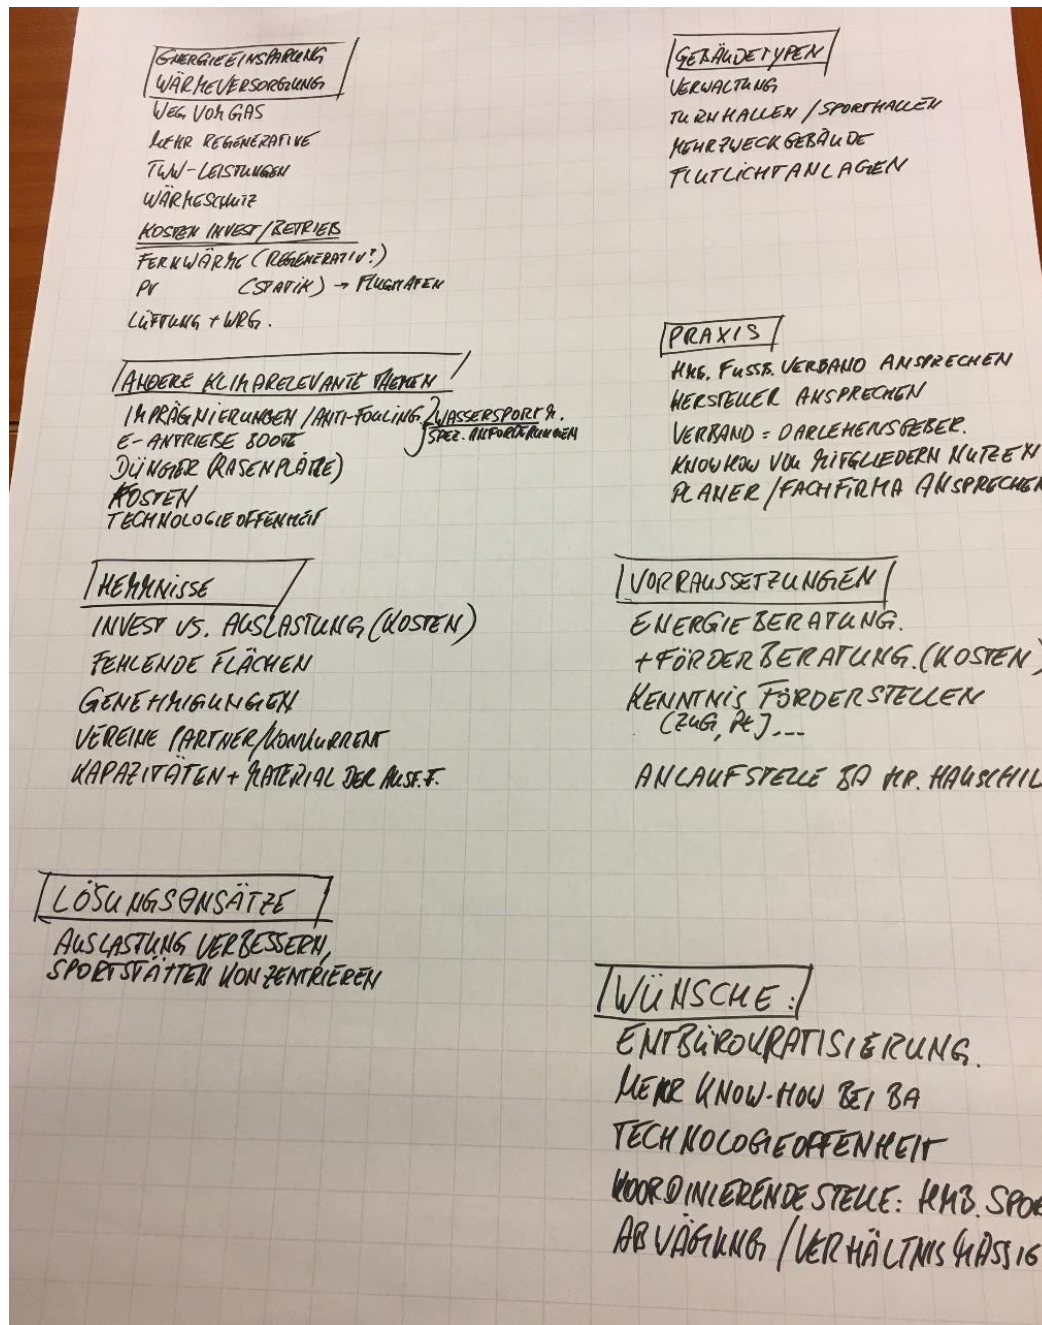 ENERGIEEINSPARUNG
WÄRMEVERSORGUNG
WEG VOM GAS
MEHR REGENERATIVE
TWW-LEISTUNGEN
WÄRMESCHUTZ
KOSTEN INVEST/BETRIEB
FERNWÄRME (REGENERATIV?)
PV (STATIK) → FLUGHAFEN
LÜFTUNG + WRG.
ANDERE KLIMARELEVANTE THEMEN
IMPRÄGNIERUNGEN / ANTI-FOULING WASSERSPORT
E-ANTRIEBE BOOTE SPEZ. ANFORDERUNGEN
DÜNGER (RASENPLÄTZE)
KOSTEN
TECHNOLOGIEOFFENHEIT
HEMMNISSE
INVEST VS. AUSLASTUNG (KOSTEN)
FEHLENDE FLÄCHEN
GENEHMIGUNGEN
VEREINE PARTNER/KONKURRENT
KAPAZITÄTEN + MATERIAL DER AUSF.F.
LÖSUNGSANSÄTZE
AUSLASTUNG VERBESSERN,
SPORTSTÄTTEN KONZENTRIEREN
GEBÄUDETYPEN
VERWALTUNG
TURNHALLEN / SPORTHALLEN
MEHRZWECKGEBÄUDE
FLUTLICHTANLAGEN
PRAXIS
HMB. FUSSB. VERBAND ANSPRECHEN
HERSTELLER ANSPRECHEN
VERBAND = DARLEHENSGEBER.
KNOWHOW VON MITGLIEDERN NUTZEN
PLANER / FACHFIRMA ANSPRECHEN
VORRAUSSETZUNGEN
ENERGIEBERATUNG.
+ FÖRDERBERATUNG. (KOSTEN)
KENNTNIS FÖRDERSTELLEN
(ZUG, PtJ, ...
ANLAUFSTELLE BA HR. HAUSCHIL
WÜNSCHE:
ENTBÜROKRATISIERUNG.
MEHR KNOW-HOW BEI BA
TECHNOLOGIEOFFENHEIT
KOORDINIERENDE STELLE: HMB. SPOR
ABWÄGUNG / VERHÄLTNISMÄSSIG